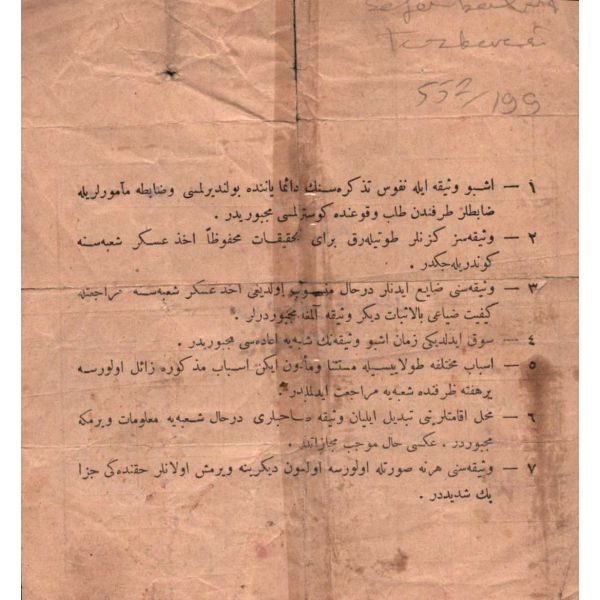 552/199
١ — اشبو وثيقه ايله نفوس تذكره‌سنك دائما ياننده بولنديرلمسى وضابطه مأمورلريله
ضابطلر طرفندن طلب وقوعنده كوسترلمسى مجبوريدر .
٢ — وثيقه‌سز كزنلر طوتيله‌رق براى تحقيقات محفوظاً اخذ عسكر شعبه‌سنه
كوندريله‌جكدر .
٣ — وثيقه‌سنى ضايع ايدنلر درحال منسوب اولديغى اخذ عسكر شعبه‌سنه مراجعتله
كيفيت ضياعى بالاثبات ديكر وثيقه آلمغه مجبوردرلر .
٤ — سوق ايدلديكى زمان اشبو وثيقه‌نك شعبه‌يه اعاده‌سى مجبوريدر .
٥ — اسباب مختلفه طولاييسيله مستثنا ومأذون ايكن اسباب مذكوره زائل اولورسه
برهفته ظرفنده شعبه‌يه مراجعت ايدلملدر .
٦ — محل اقامتلرينى تبديل ايليان وثيقه صاحبلرى درحال شعبه‌يه معلومات ويرمكه
مجبوردر . عكسى حال موجب مجازاتدر .
٧ — وثيقه‌سنى هرنه صورتله اولورسه اولسون ديكرينه ويرمش اولانلر حقنده‌كى جزا
پك شديددر .